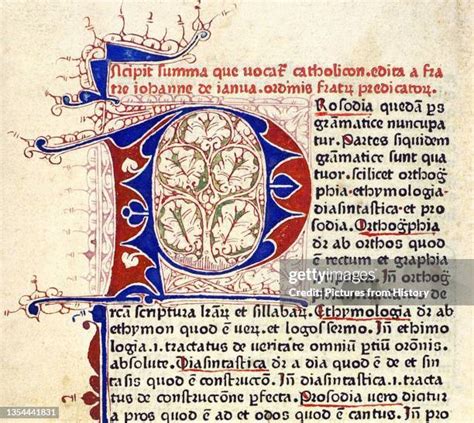 Incipit summa que vocat̃ catholicon. edita a fra
tre iohanne de ianua. ordinis fratrũ predicatoɽ.
Prosodia quedam ps
gramatice nuncupa
tur. Partes siquidem
gramatice sunt qua
tuor. scilicet orthog̃
phia. ethymologia.
diasintastica. et pro
sodia. Orthog̃phia
dr̃ ab orthos quod
ẽ rectum et graphia
Iñ orthog̃
dr̃cm̃ scriptura lr̃aɽ et sillabaɽ. Ethymologia dr̃ ab
ethymon quod ẽ veɽ. et logos sermo. Iñ ethimo
logia .i. tractatus de veritate omniũ ptiũ orõnis.
absolute. Diasintastica dr̃ a dia quod ẽ de et sin
tasis quod ẽ constructõ. Iñ diasintastica .i. tracta
tus de constructõne pfecta. Prosodia vero dicitur
a pros quod ẽ ad et odos quod ẽ cantus. Iñ pro
gettyimages
Pictures from History
1354441831